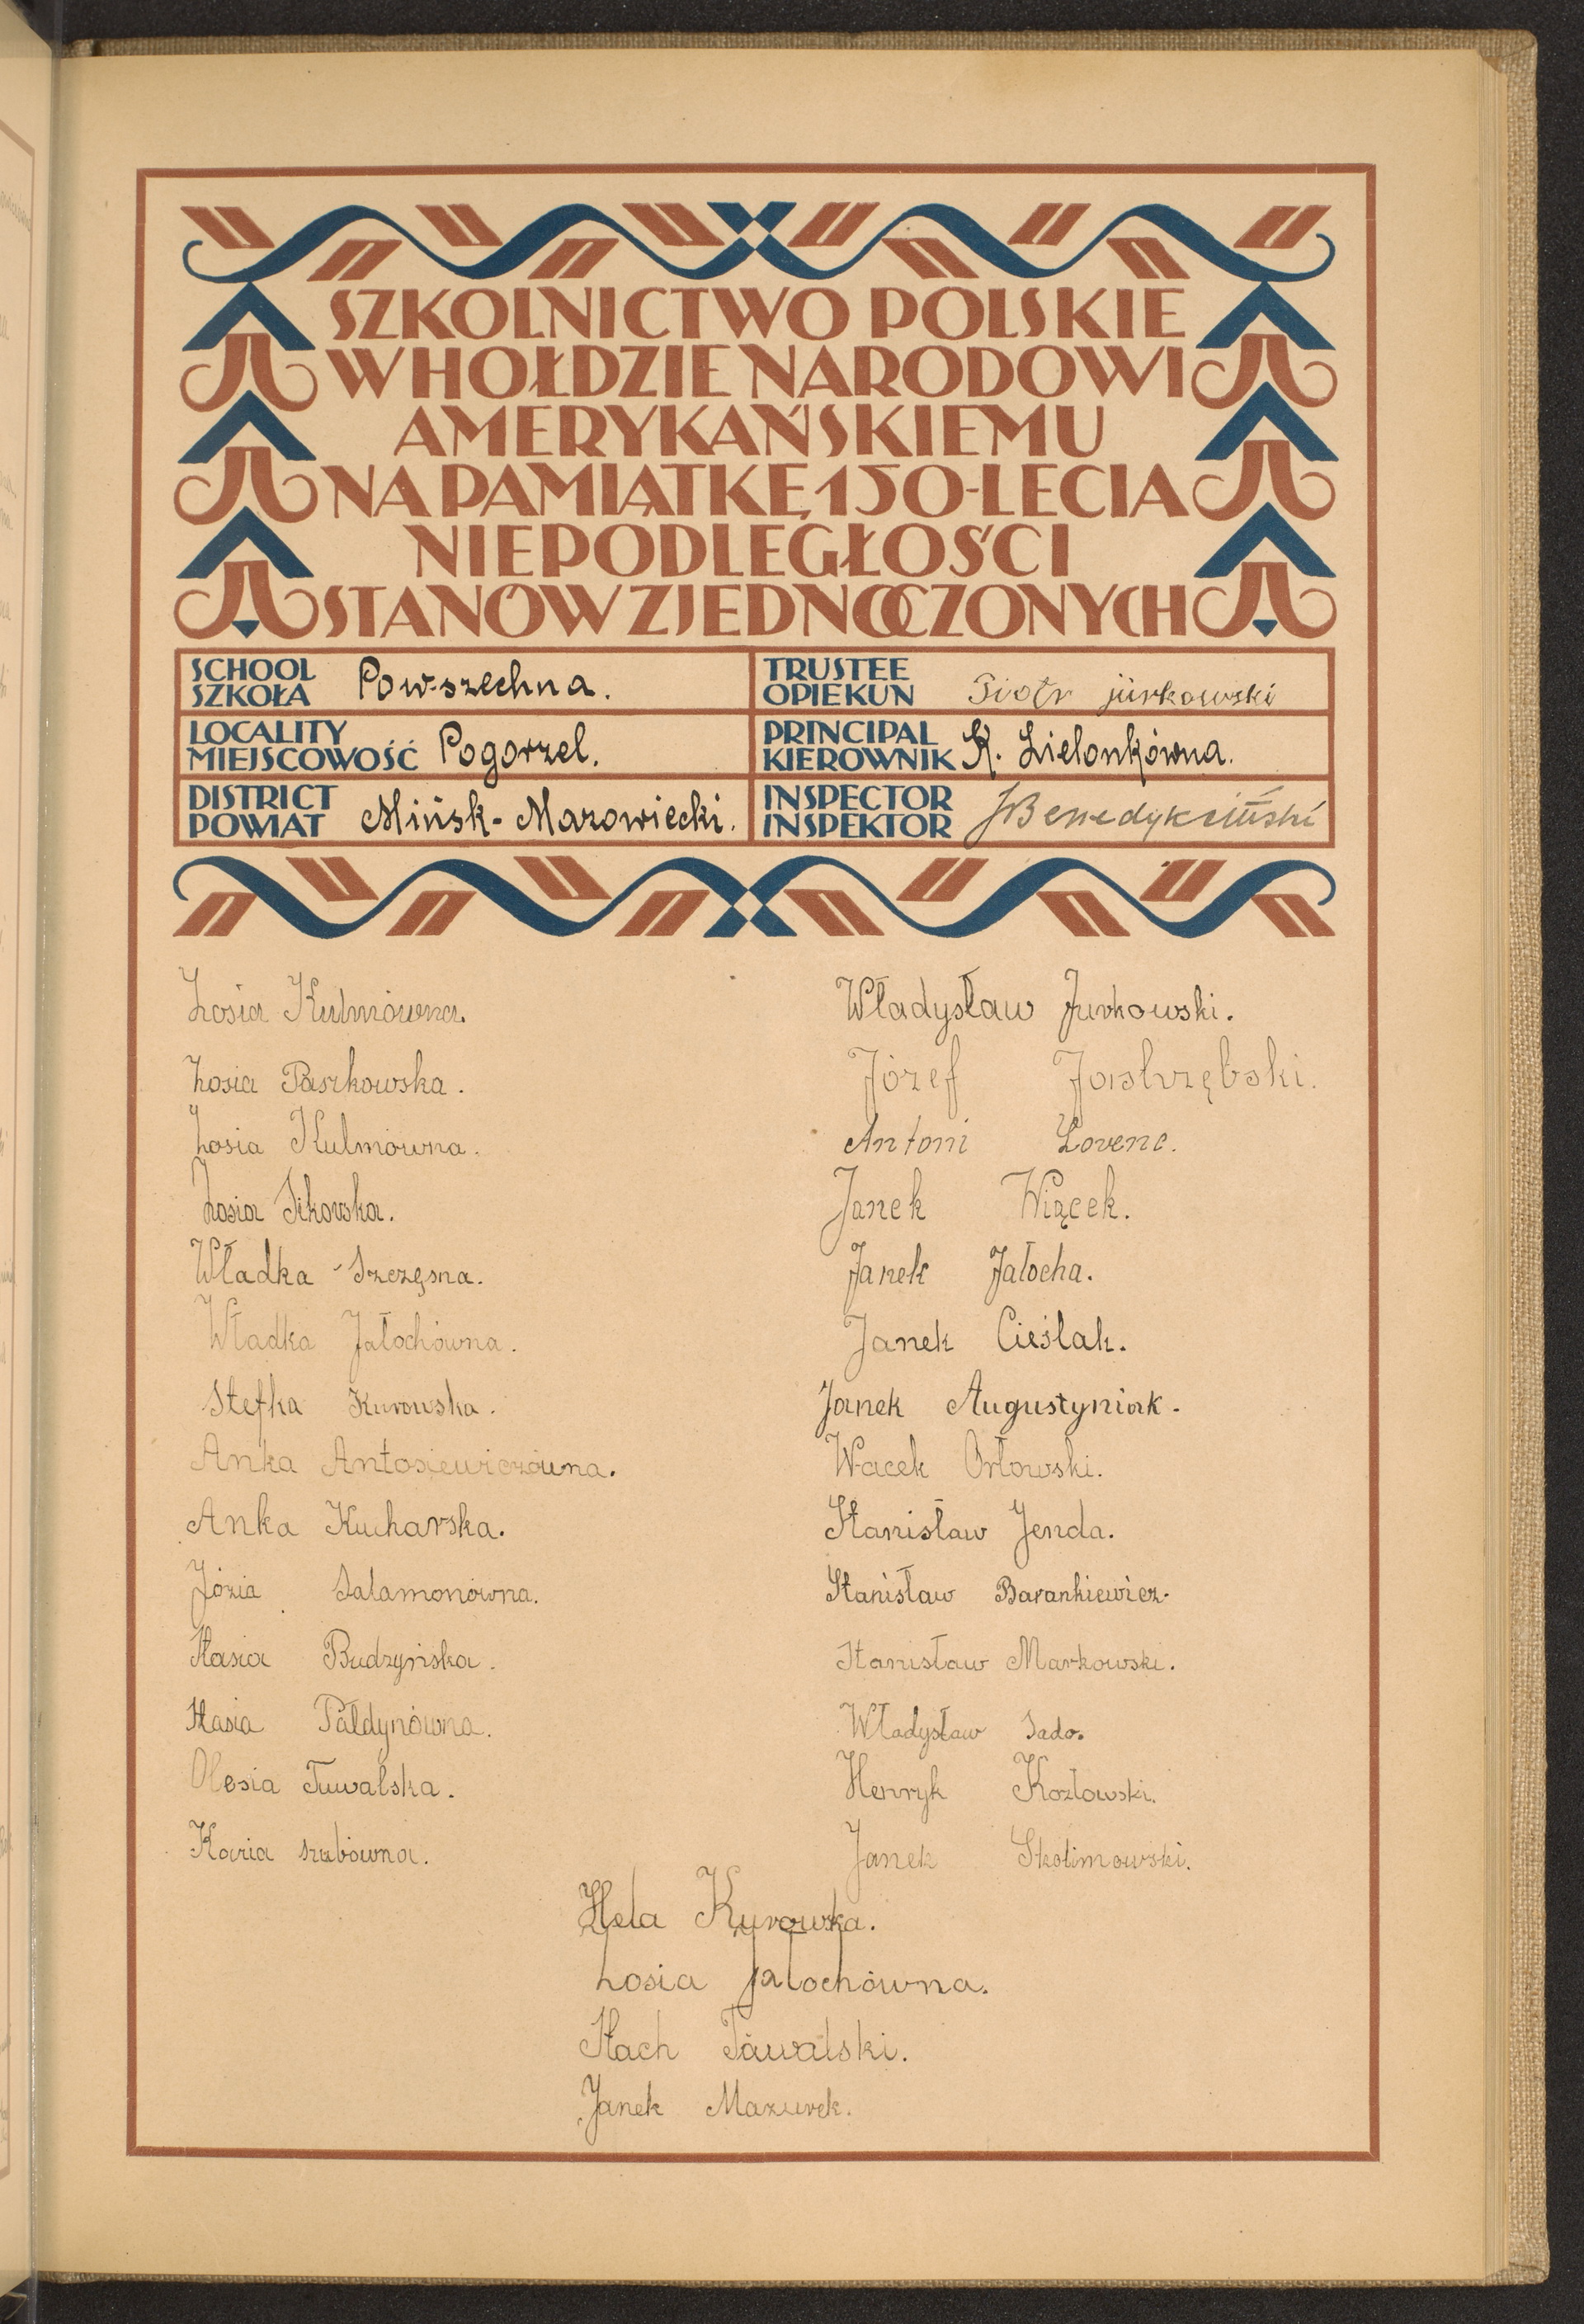 SZKOLNICTWO POLSKIE
W HOŁDZIE NARODOWI
AMERYKAŃSKIEMU
NA PAMIĄTKĘ 150-LECIA
NIEPODLEGŁOŚCI
STANÓW ZJEDNOCZONYCH
SCHOOL
SZKOŁA Powszechna.
TRUSTEE
OPIEKUN Piotr jurkowski
LOCALITY
MIEJSCOWOŚĆ Pogorzel.
PRINCIPAL
KIEROWNIK K. Zielonkówna.
DISTRICT
POWIAT Mińsk-Mazowiecki.
INSPECTOR
INSPEKTOR JBenedykciński
Zosia Kulmówna.
Zosia Paszkowska.
Zosia Kulmówna.
Zosia Sikovska.
Władka Szczęsna.
Władka Jałochówna.
Stefka Kurowska.
Anka Antosiewiczówna.
Anka Kucharska.
Józia Salamonówna.
Stasia Budzyńska.
Stasia Pałdynówna.
Olesia Tuwalska.
Kazia szubówna.
Władysław Jurkowski.
Józef Jastrzębski.
Antoni Lorenc.
Janek Wiącek.
Janek Jałocha.
Janek Cieślak.
Janek Augustyniak.
Wacek Orłowski.
Stanisław Jenda.
Stanisław Barankiewicz.
Stanisław Markowski.
Władysław Sado.
Henryk Kozłowski.
Janek Skolimowski.
Hela Kurowska.
Zosia Jałochówna.
Stach Tawalski.
Janek Mazurek.